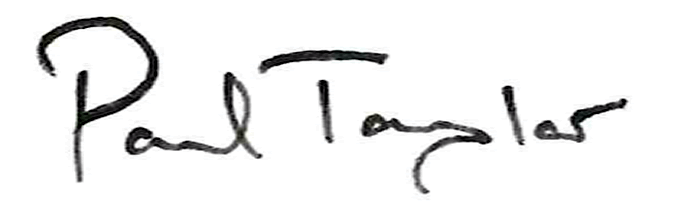 Paul Taylor